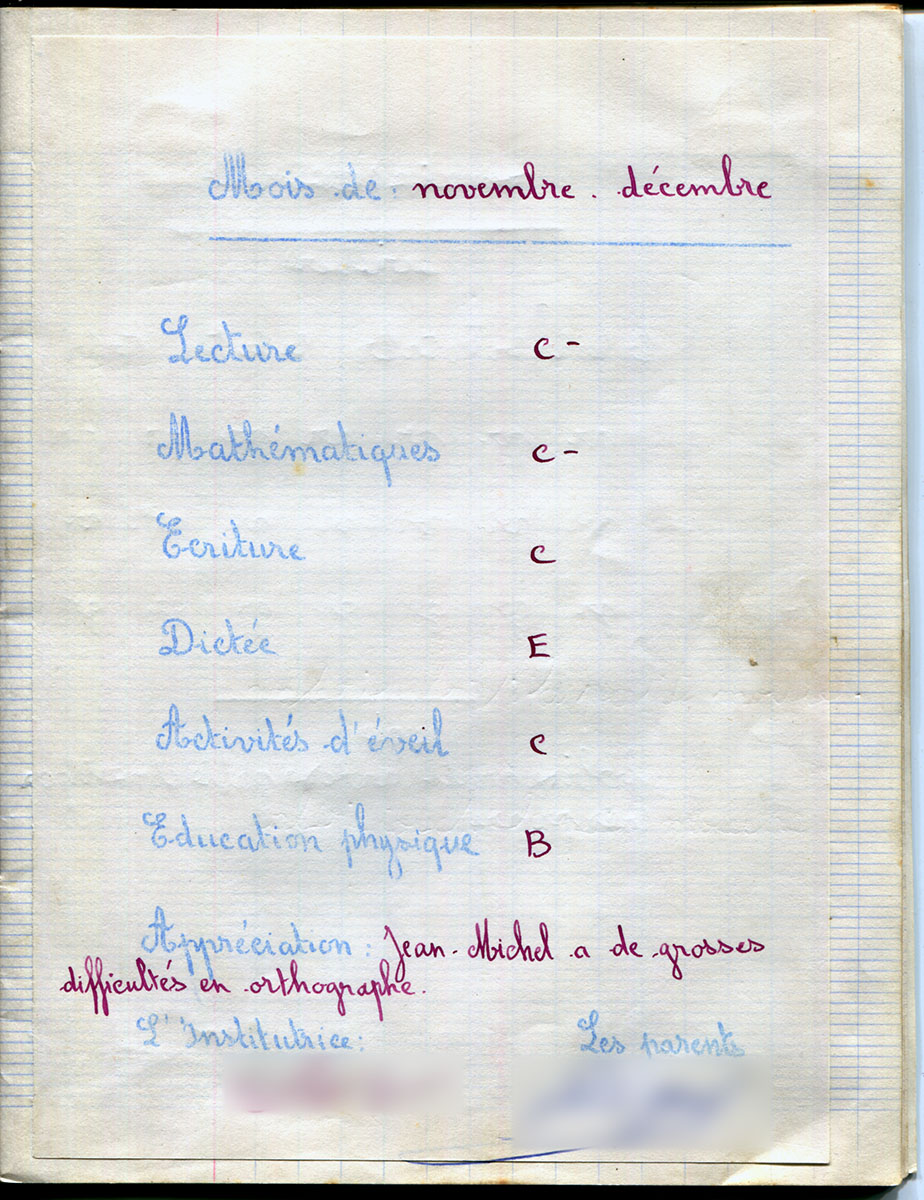 Mois de : novembre . décembre
Lecture C -
Mathématiques C -
Ecriture C
Dictée E
Activités d'éveil C
Education physique B
Appréciation : Jean-Michel a de grosses
difficultés en orthographe.
L'Institutrice : Les parents